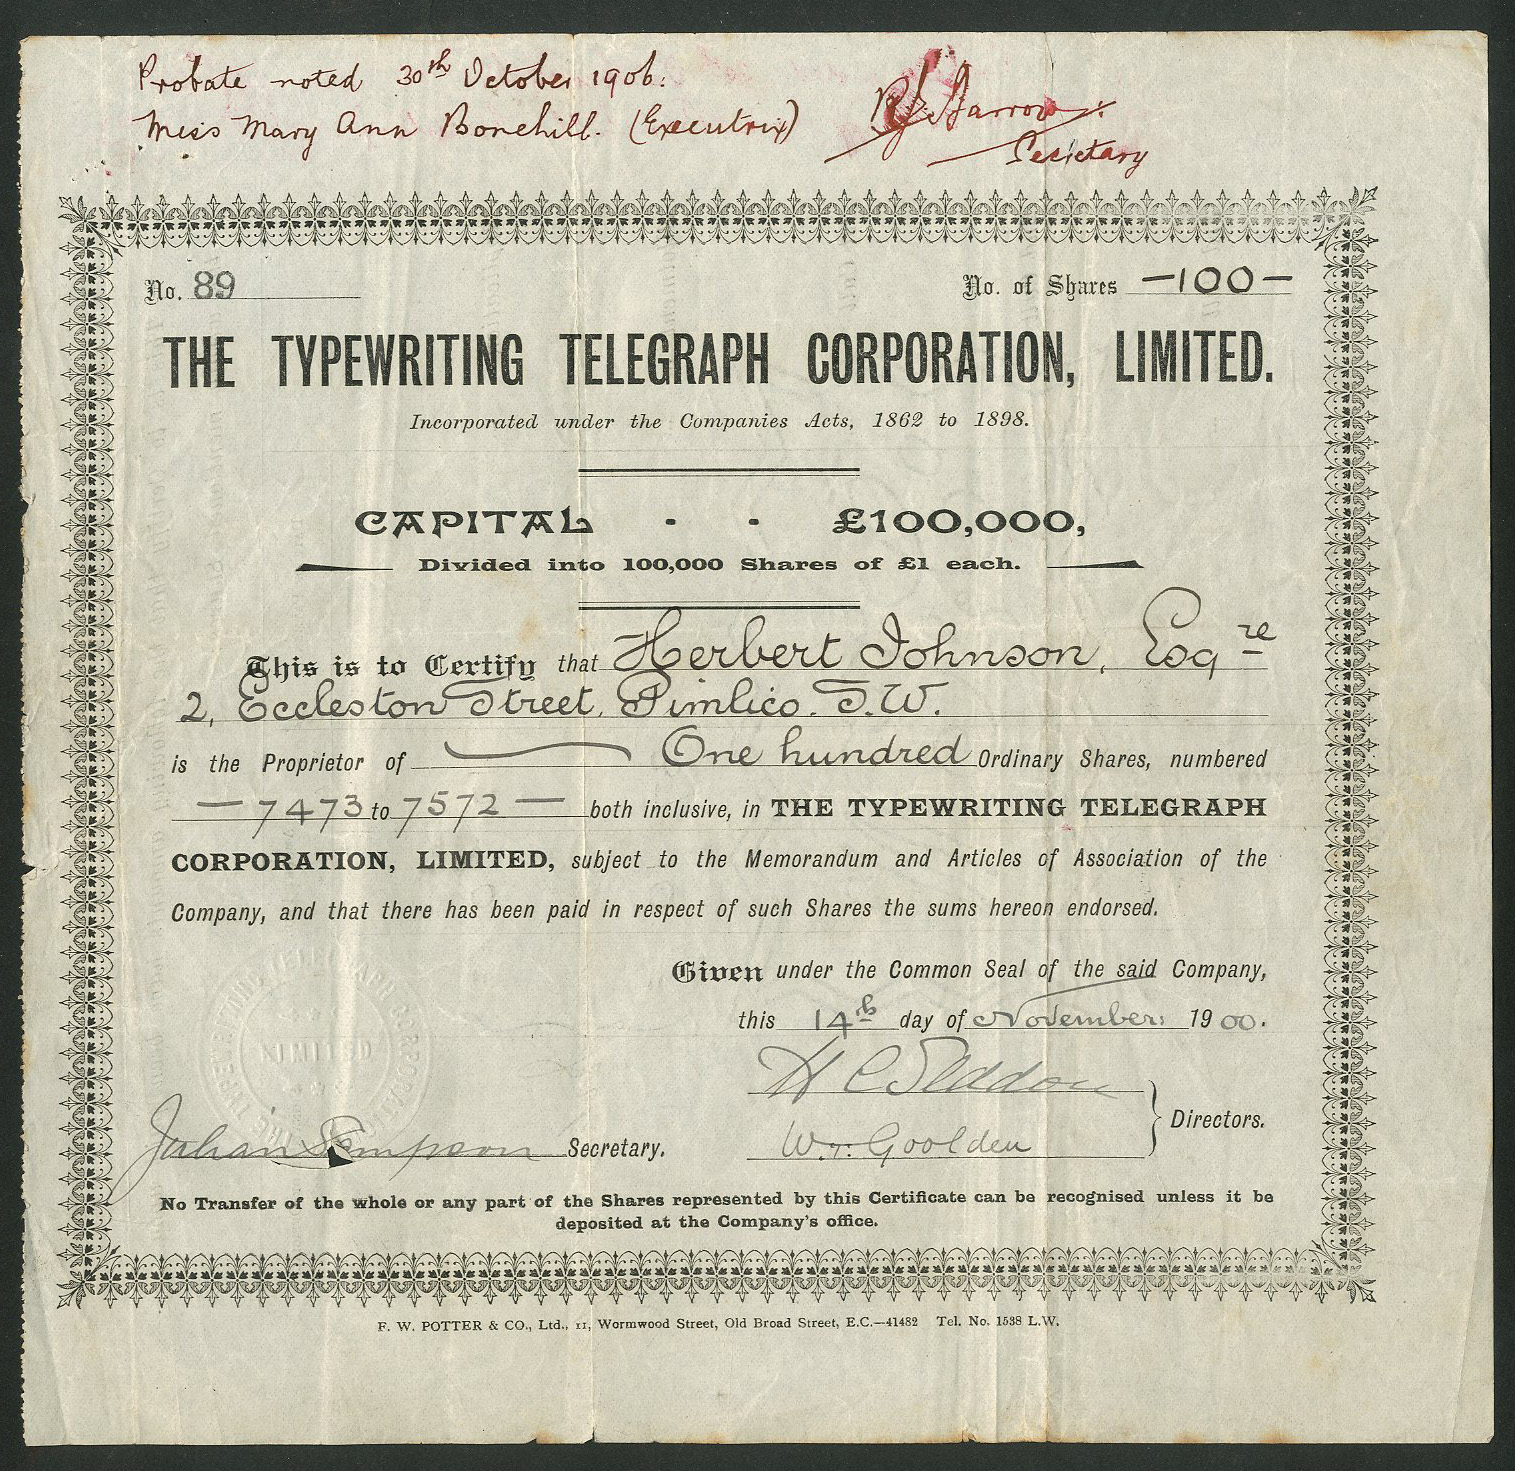 Probate noted 30th October 1906.
Miss Mary Ann Bonehill. (Executrix)
Secretary
No. 89
No. of Shares —100—
THE TYPEWRITING TELEGRAPH CORPORATION, LIMITED.
Incorporated under the Companies Acts, 1862 to 1898.
CAPITAL - - £100,000,
Divided into 100,000 Shares of £1 each.
This is to Certify that Herbert Johnson, Esqre
2, Eccleston Street, Pimlico. S.W.
is the Proprietor of One hundred Ordinary Shares, numbered
— 7473 to 7572 — both inclusive, in THE TYPEWRITING TELEGRAPH
CORPORATION, LIMITED, subject to the Memorandum and Articles of Association of the
Company, and that there has been paid in respect of such Shares the sums hereon endorsed.
Given under the Common Seal of the said Company,
this 14th day of November 1900.
THE TYPEWRITING TELEGRAPH CORPORATION
LIMITED
H C Seddon
Directors.
W. T. Goolden
Julian Sampson Secretary.
No Transfer of the whole or any part of the Shares represented by this Certificate can be recognised unless it be
deposited at the Company's office.
F. W. POTTER & CO., Ltd., 11, Wormwood Street, Old Broad Street, E.C.—41482 Tel. No. 1538 L.W.